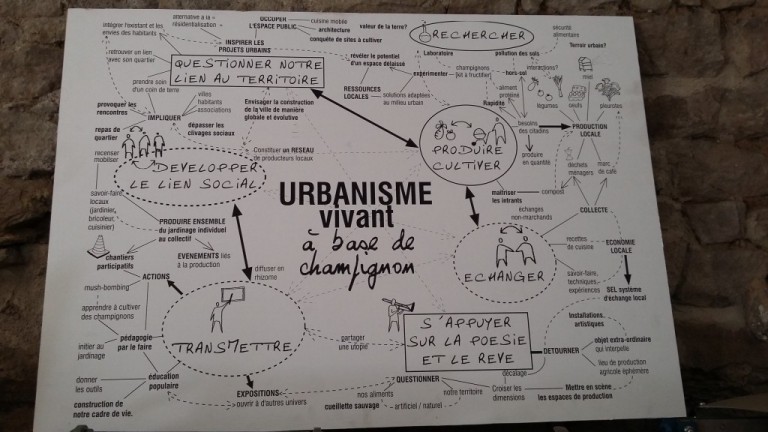 intégrer l'existant et les
envies des habitants
alternative à la «
résidentialisation »
OCCUPER
L'ESPACE PUBLIC
cuisine mobile
architecture
conquête de sites à cultiver
valeur de la terre?
RECHERCHER
sécurité
alimentaire
Terroir urbain?
INSPIRER LES
PROJETS URBAINS
retrouver un lien
avec son quartier
QUESTIONNER NOTRE
LIEN AU TERRITOIRE
révéler le potentiel
d'un espace délaissé
Laboratoire
pollution des sols
interactions?
expérimenter
champignons
(kit à fructifier)
hors-sol
miel
prendre soin
d'un coin de terre
RESSOURCES
LOCALES
solutions adaptées
au milieu urbain
aliment
protéiné
Rapidité
légumes
oeufs
pleurotes
villes
habitants
associations
provoquer les
rencontres
IMPLIQUER
Envisager la construction
de la ville de manière
globale et évolutive
dépasser les
clivages sociaux
besoins
des citadins
PRODUCTION
LOCALE
repas de
quartier
Constituer un RESEAU
de producteurs locaux
PRODUIRE
CULTIVER
produire
en quantité
recenser
mobiliser
DEVELOPPER
LE LIEN SOCIAL
déchets
ménagers
marc
de café
URBANISME
vivant
à base de
champignon
maitriser
les intrants
compost
savoir-faire
locaux
(jardinier,
bricoleur,
cuisinier)
échanges
non-marchands
COLLECTE
PRODUIRE ENSEMBLE
du jardinage individuel
au collectif
recettes
de cuisine
ECONOMIE
LOCALE
chantiers
participatifs
EVENEMENTS liés
à la production
ECHANGER
diffuser en
rhizome
savoir-faire,
techniques,
expériences
SEL système
d'échange local
ACTIONS
mush-bombing
apprendre à cultiver
des champignons
Installations
artistiques
pédagogie
par le faire
TRANSMETTRE
partager
une utopie
S'APPUYER
SUR LA POESIE
ET LE REVE
DETOURNER
objet extra-ordinaire
qui interpelle
initier au
jardinage
lieu de production
agricole éphémère
décalage
donner
les outils
éducation
populaire
QUESTIONNER
EXPOSITIONS
ouvrir à d'autres univers
nos aliments
notre territoire
Croiser les
dimensions
Mettre en scène
les espaces de production
cueillette sauvage
artificiel / naturel
construction de
notre cadre de vie.